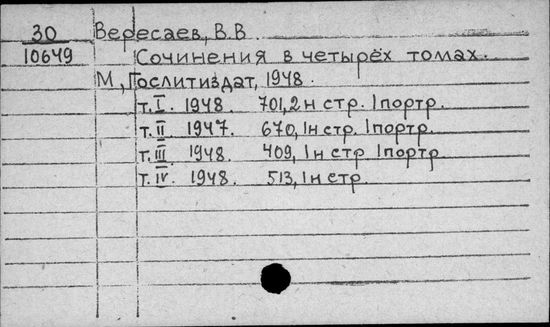 30 Вересаев, В.В.
10649 Сочинения в четырёх томах.
М, Гослитиздат, 1948.
т. I. 1948. 701, 2н стр. 1портр.
т. II 1947. 670, 1н стр. 1портр.
т. III 1948. 409, 1н стр 1портр.
т. IV. 1948. 513, 1н стр.